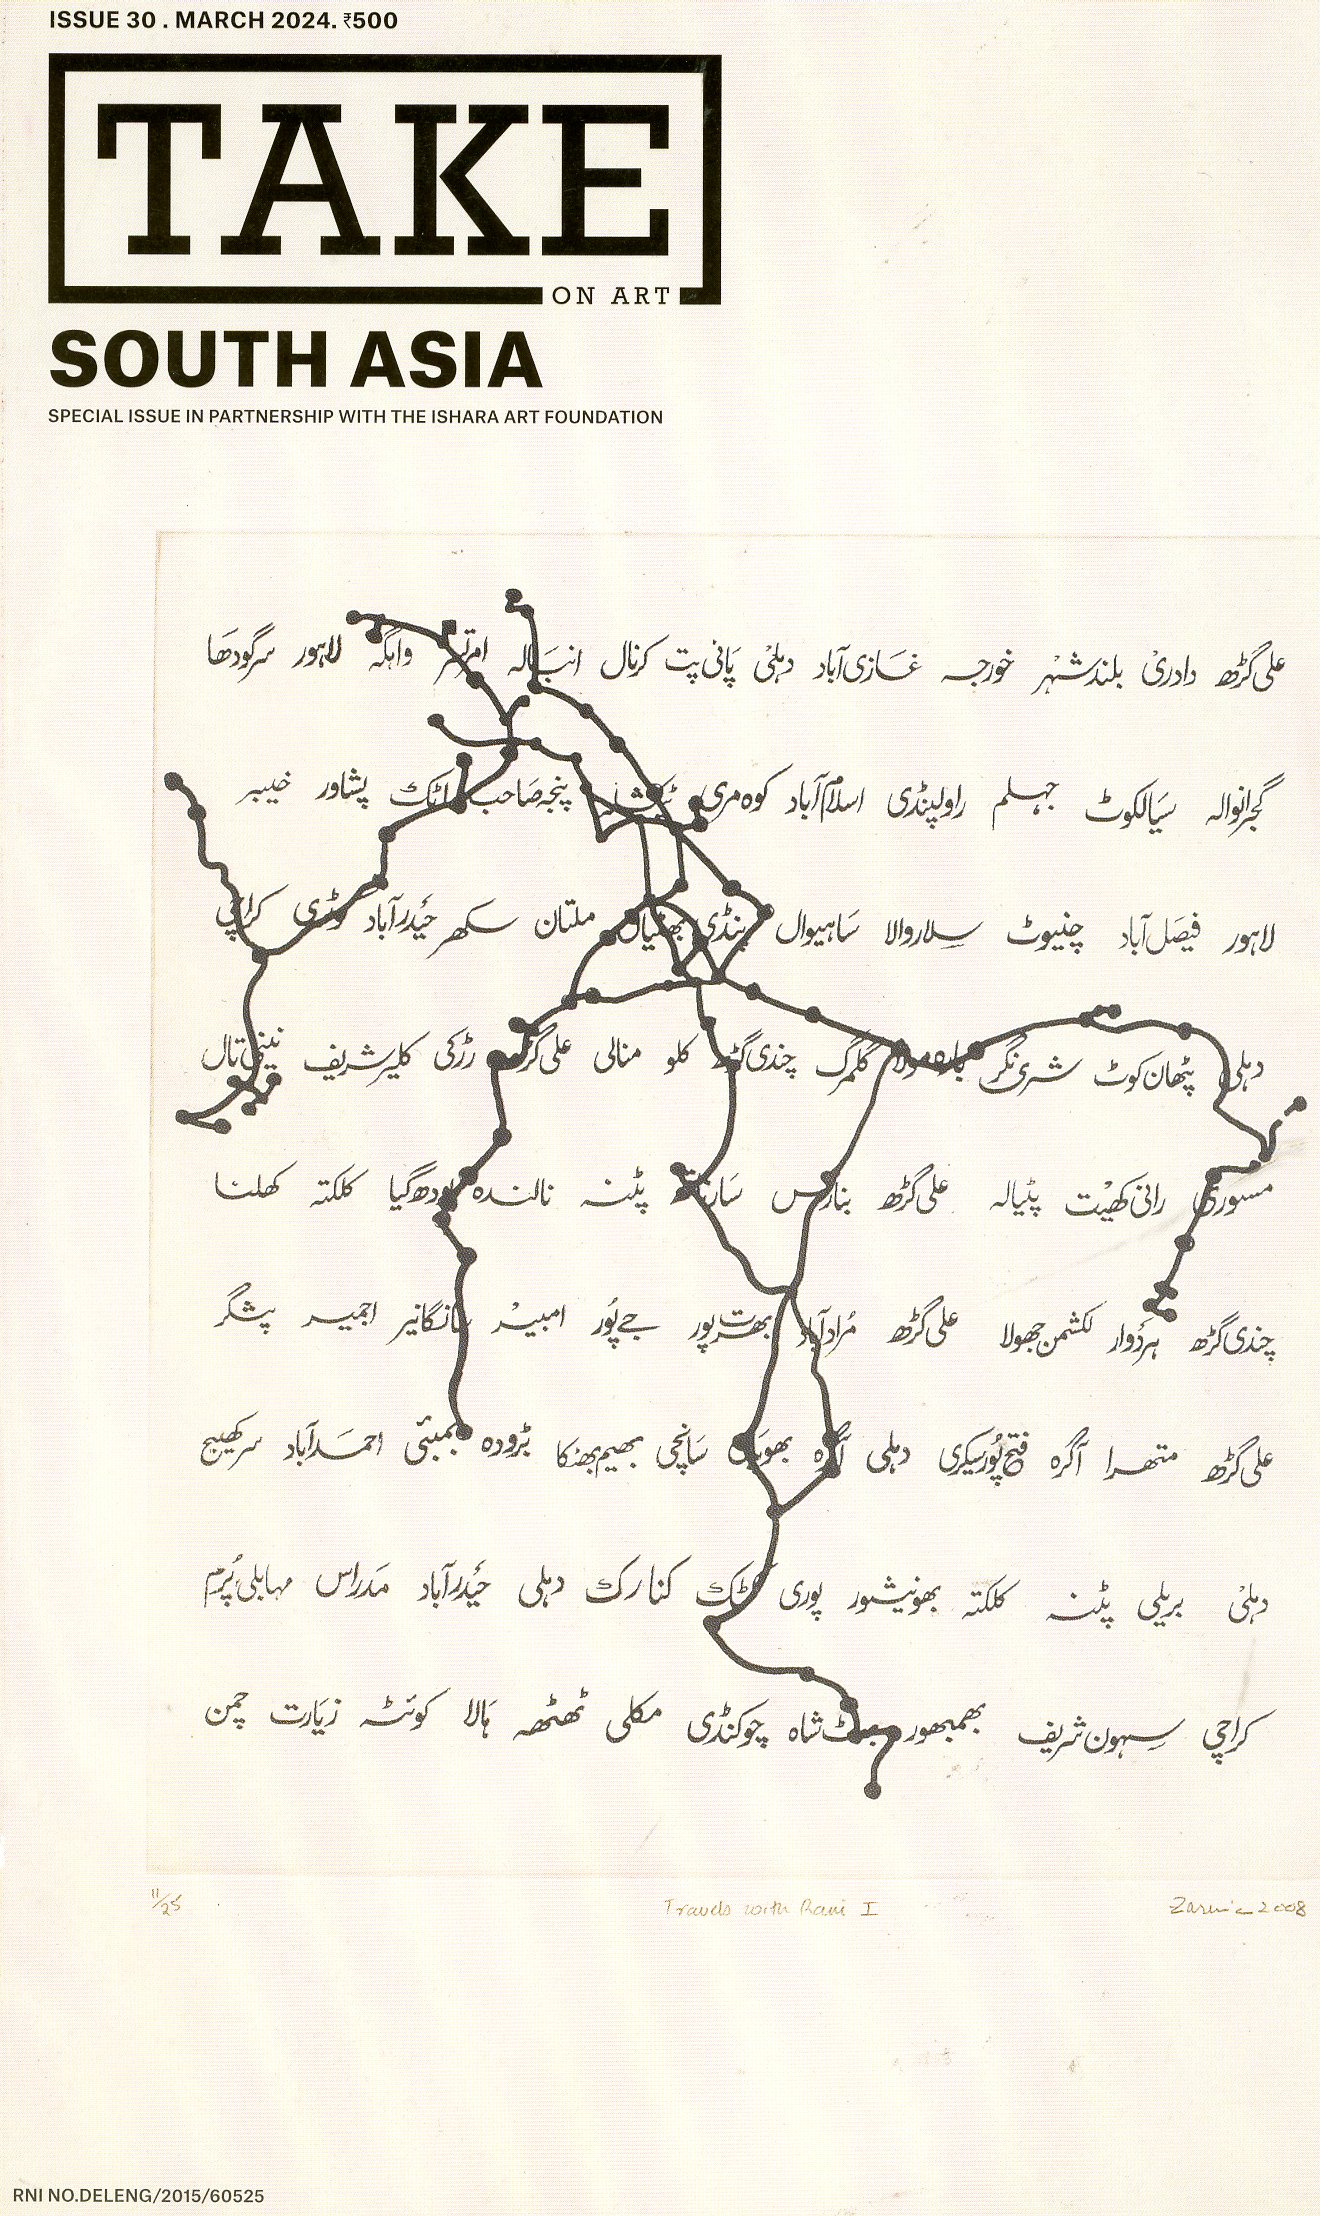 ISSUE 30 . MARCH 2024. ₹500
TAKE
ON ART
SOUTH ASIA
SPECIAL ISSUE IN PARTNERSHIP WITH THE ISHARA ART FOUNDATION
علی گڑھ دادری بلند شہر خورجہ غازی آباد دہلی پانی پت کرنال انبالہ امرتسر واہگہ لاہور سرگودھا
گجرانوالہ سیالکوٹ جہلم راولپنڈی اسلام آباد کوہ مری ٹیکشلہ پنجہ صاحب اٹک پشاور خیبر
لاہور فیصل آباد چنیوٹ سلاروالا ساہیوال پنڈی بھٹیاں ملتان سکھر حیدرآباد کوٹری کراچی
دہلی پٹھان کوٹ شری نگر بارہ مولا گلمرگ چندی گڑھ کلو منالی علی گڑھ رڑکی کلیر شریف نینی تال
مسوری رانی کھیت پٹیالہ علی گڑھ بنارس سارناتھ پٹنہ نالندہ بودھ گیا کلکتہ کھلنا
چندی گڑھ ہردوار لکشمن جھولا علی گڑھ مُرادآباد بھرت پور جے پُور امبیر سانگانیر اجمیر پشگر
علی گڑھ متھرا آگرہ فتح پُور سیکری دہلی آگرہ بھوپال سانچی بھیم بھٹکا بڑودہ بمبئی احمدآباد سرکھیج
دہلی بریلی پٹنہ کلکتہ بھونیشور پوری کٹک کنارک دہلی حیدرآباد مدراس مہابلی پُرم
کراچی سیہون شریف بھمبھور بھٹ شاہ چوکنڈی مکلی ٹھٹھہ ہالا کوئٹہ زیارت چمن
11/25 Travels with Rani I Zarina 2008
RNI NO.DELENG/2015/60525